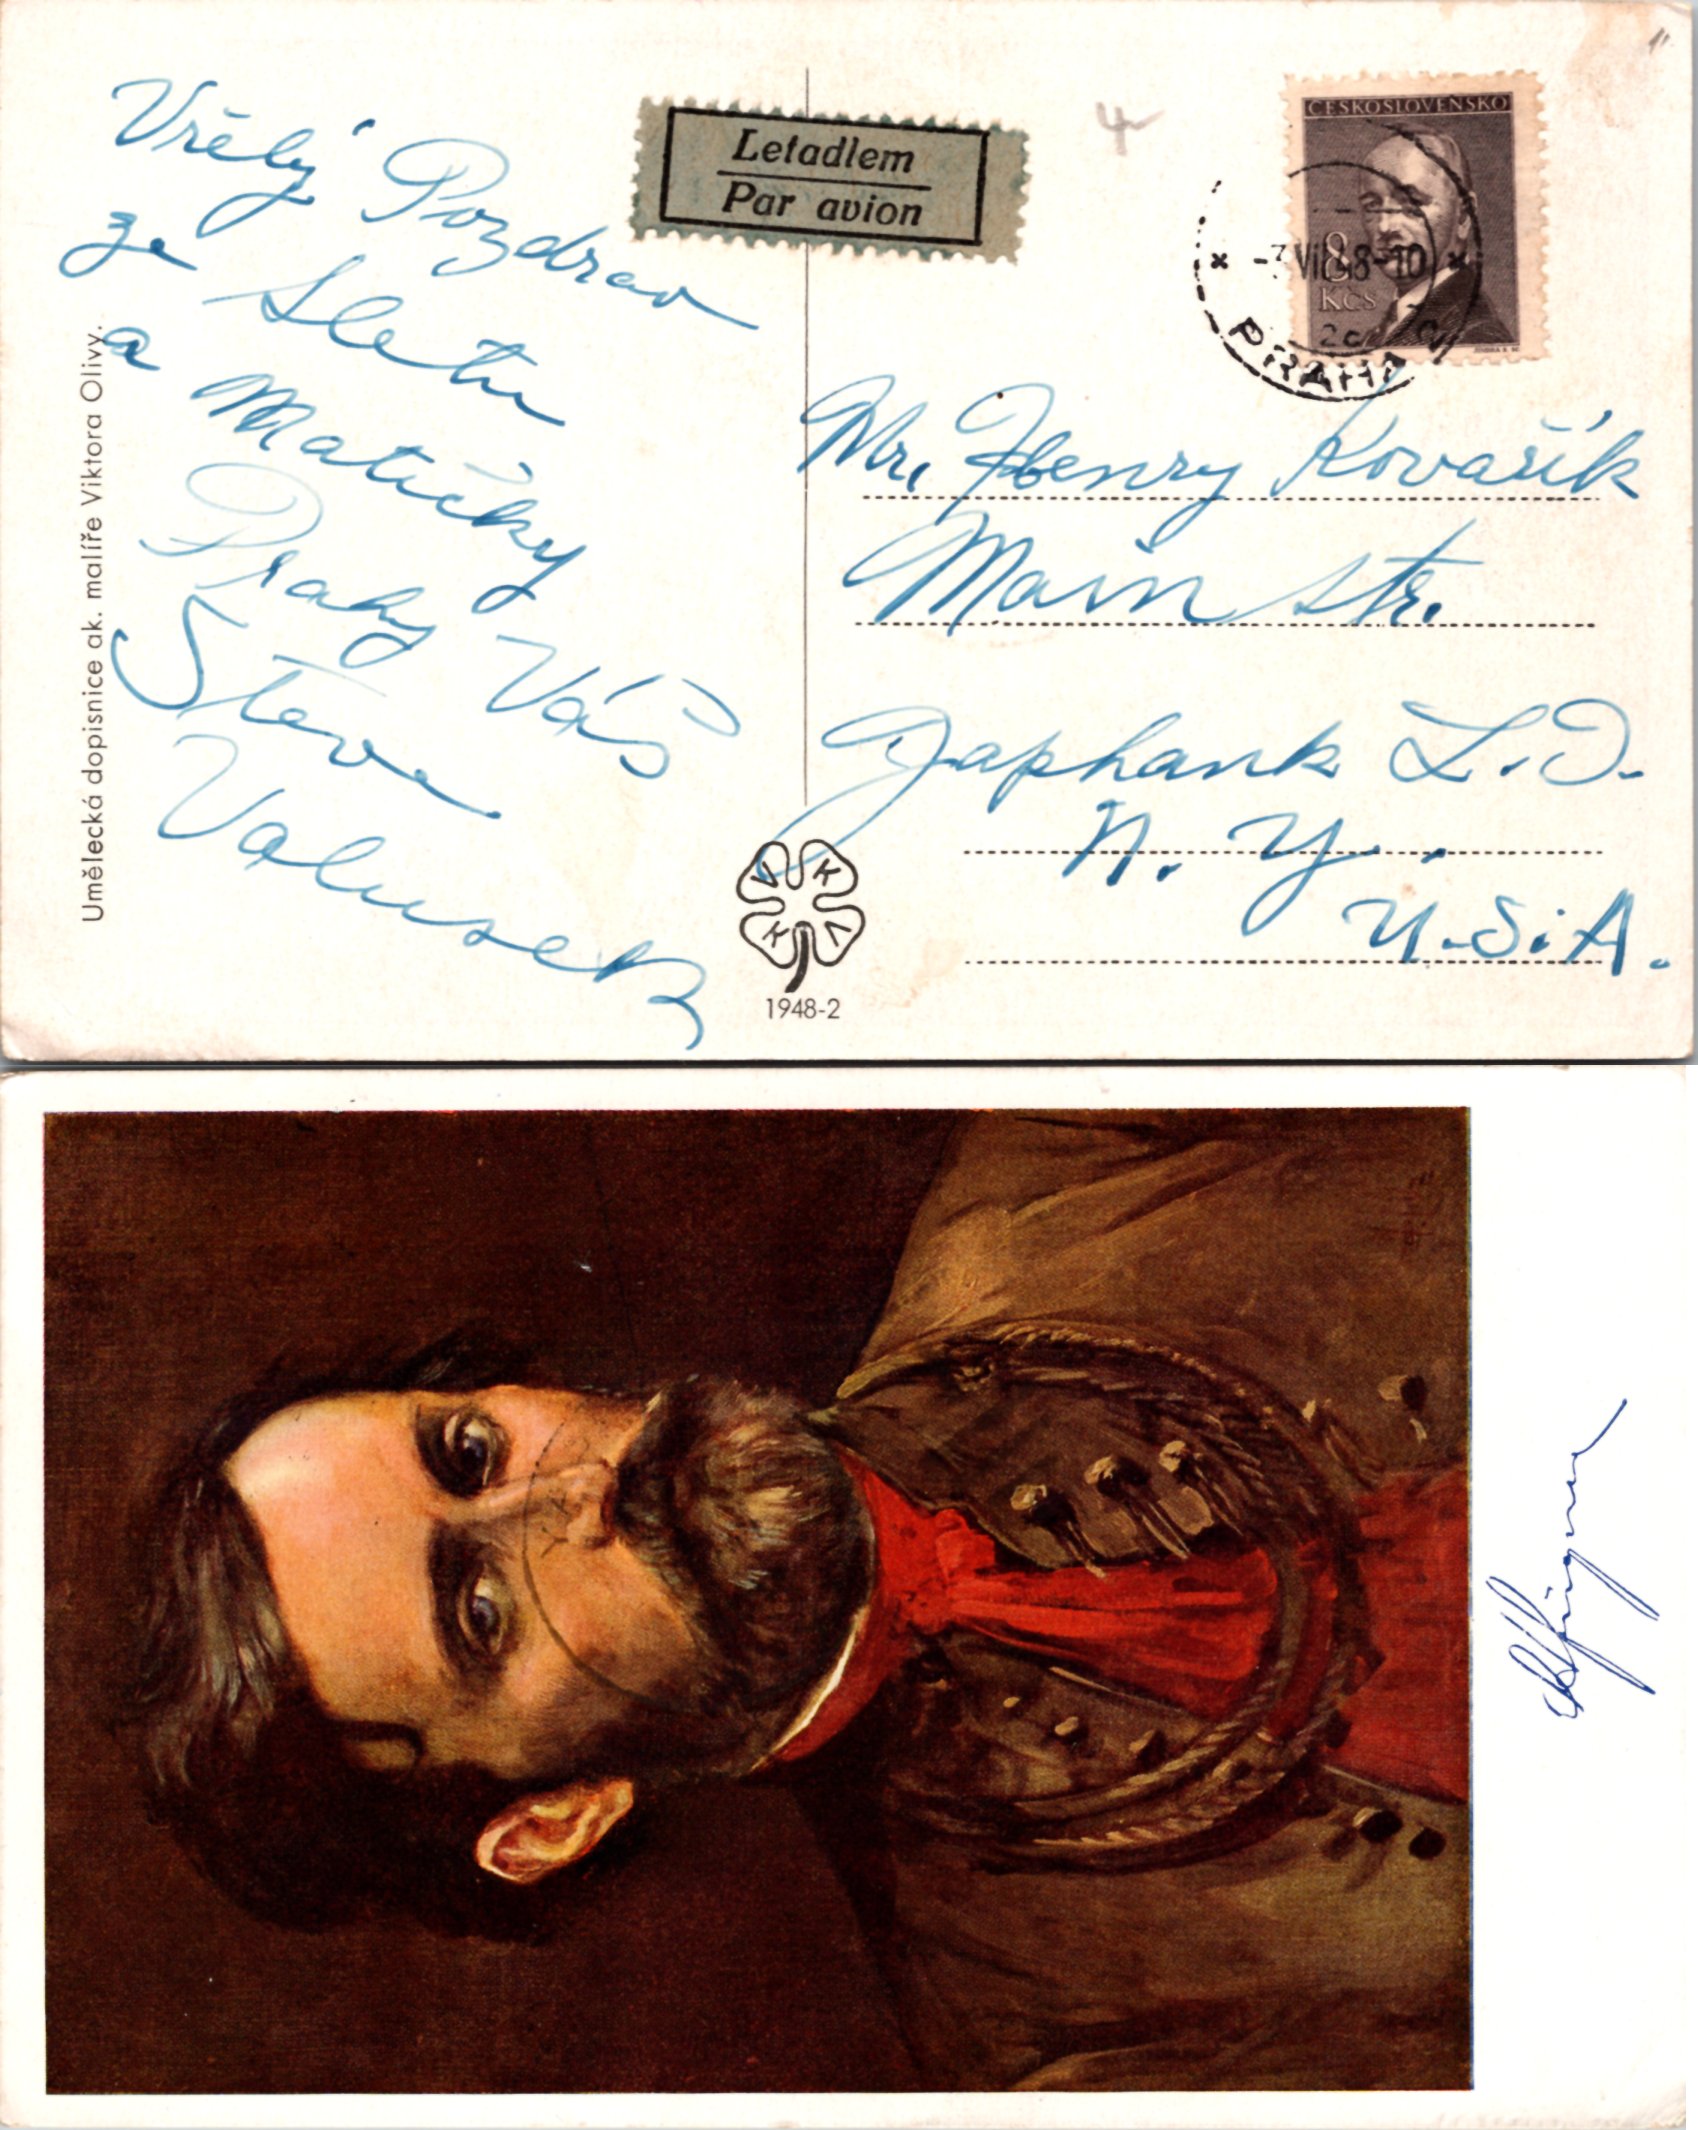 Vřelý Pozdrav
ze sletu
a Matičky
Prahy Váš
Steve
Valusek
Umělecká dopisnice ak. malíře Viktora Olivy.
Letadlem
Par avion
4
ČESKOSLOVENSKO
8
Kčs
-7.VII.48-10
PRAHA
Mr. Henry Kovařík
Main str.
Japhank L.D.
N. Y.
U.S.A.
V K
K V
1948-2